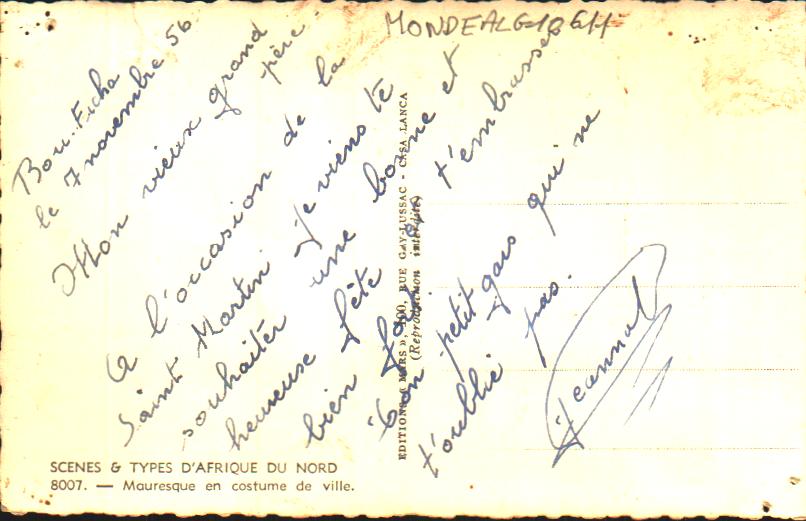 MONDEALG1964
Bou-Ficha
le 7 novembre 56
Mon vieux grand père.
A l'occasion de la
Saint Martin je viens te
souhaiter une bonne et
heureuse fête et t'embrasser
bien fort.
Ton petit gars qui ne
t'oublie pas.
Jeannot
EDITIONS « MARS », 100, RUE GAY-LUSSAC - CASALANCA
(Reproduction interdite)
SCENES & TYPES D'AFRIQUE DU NORD
8007. — Mauresque en costume de ville.